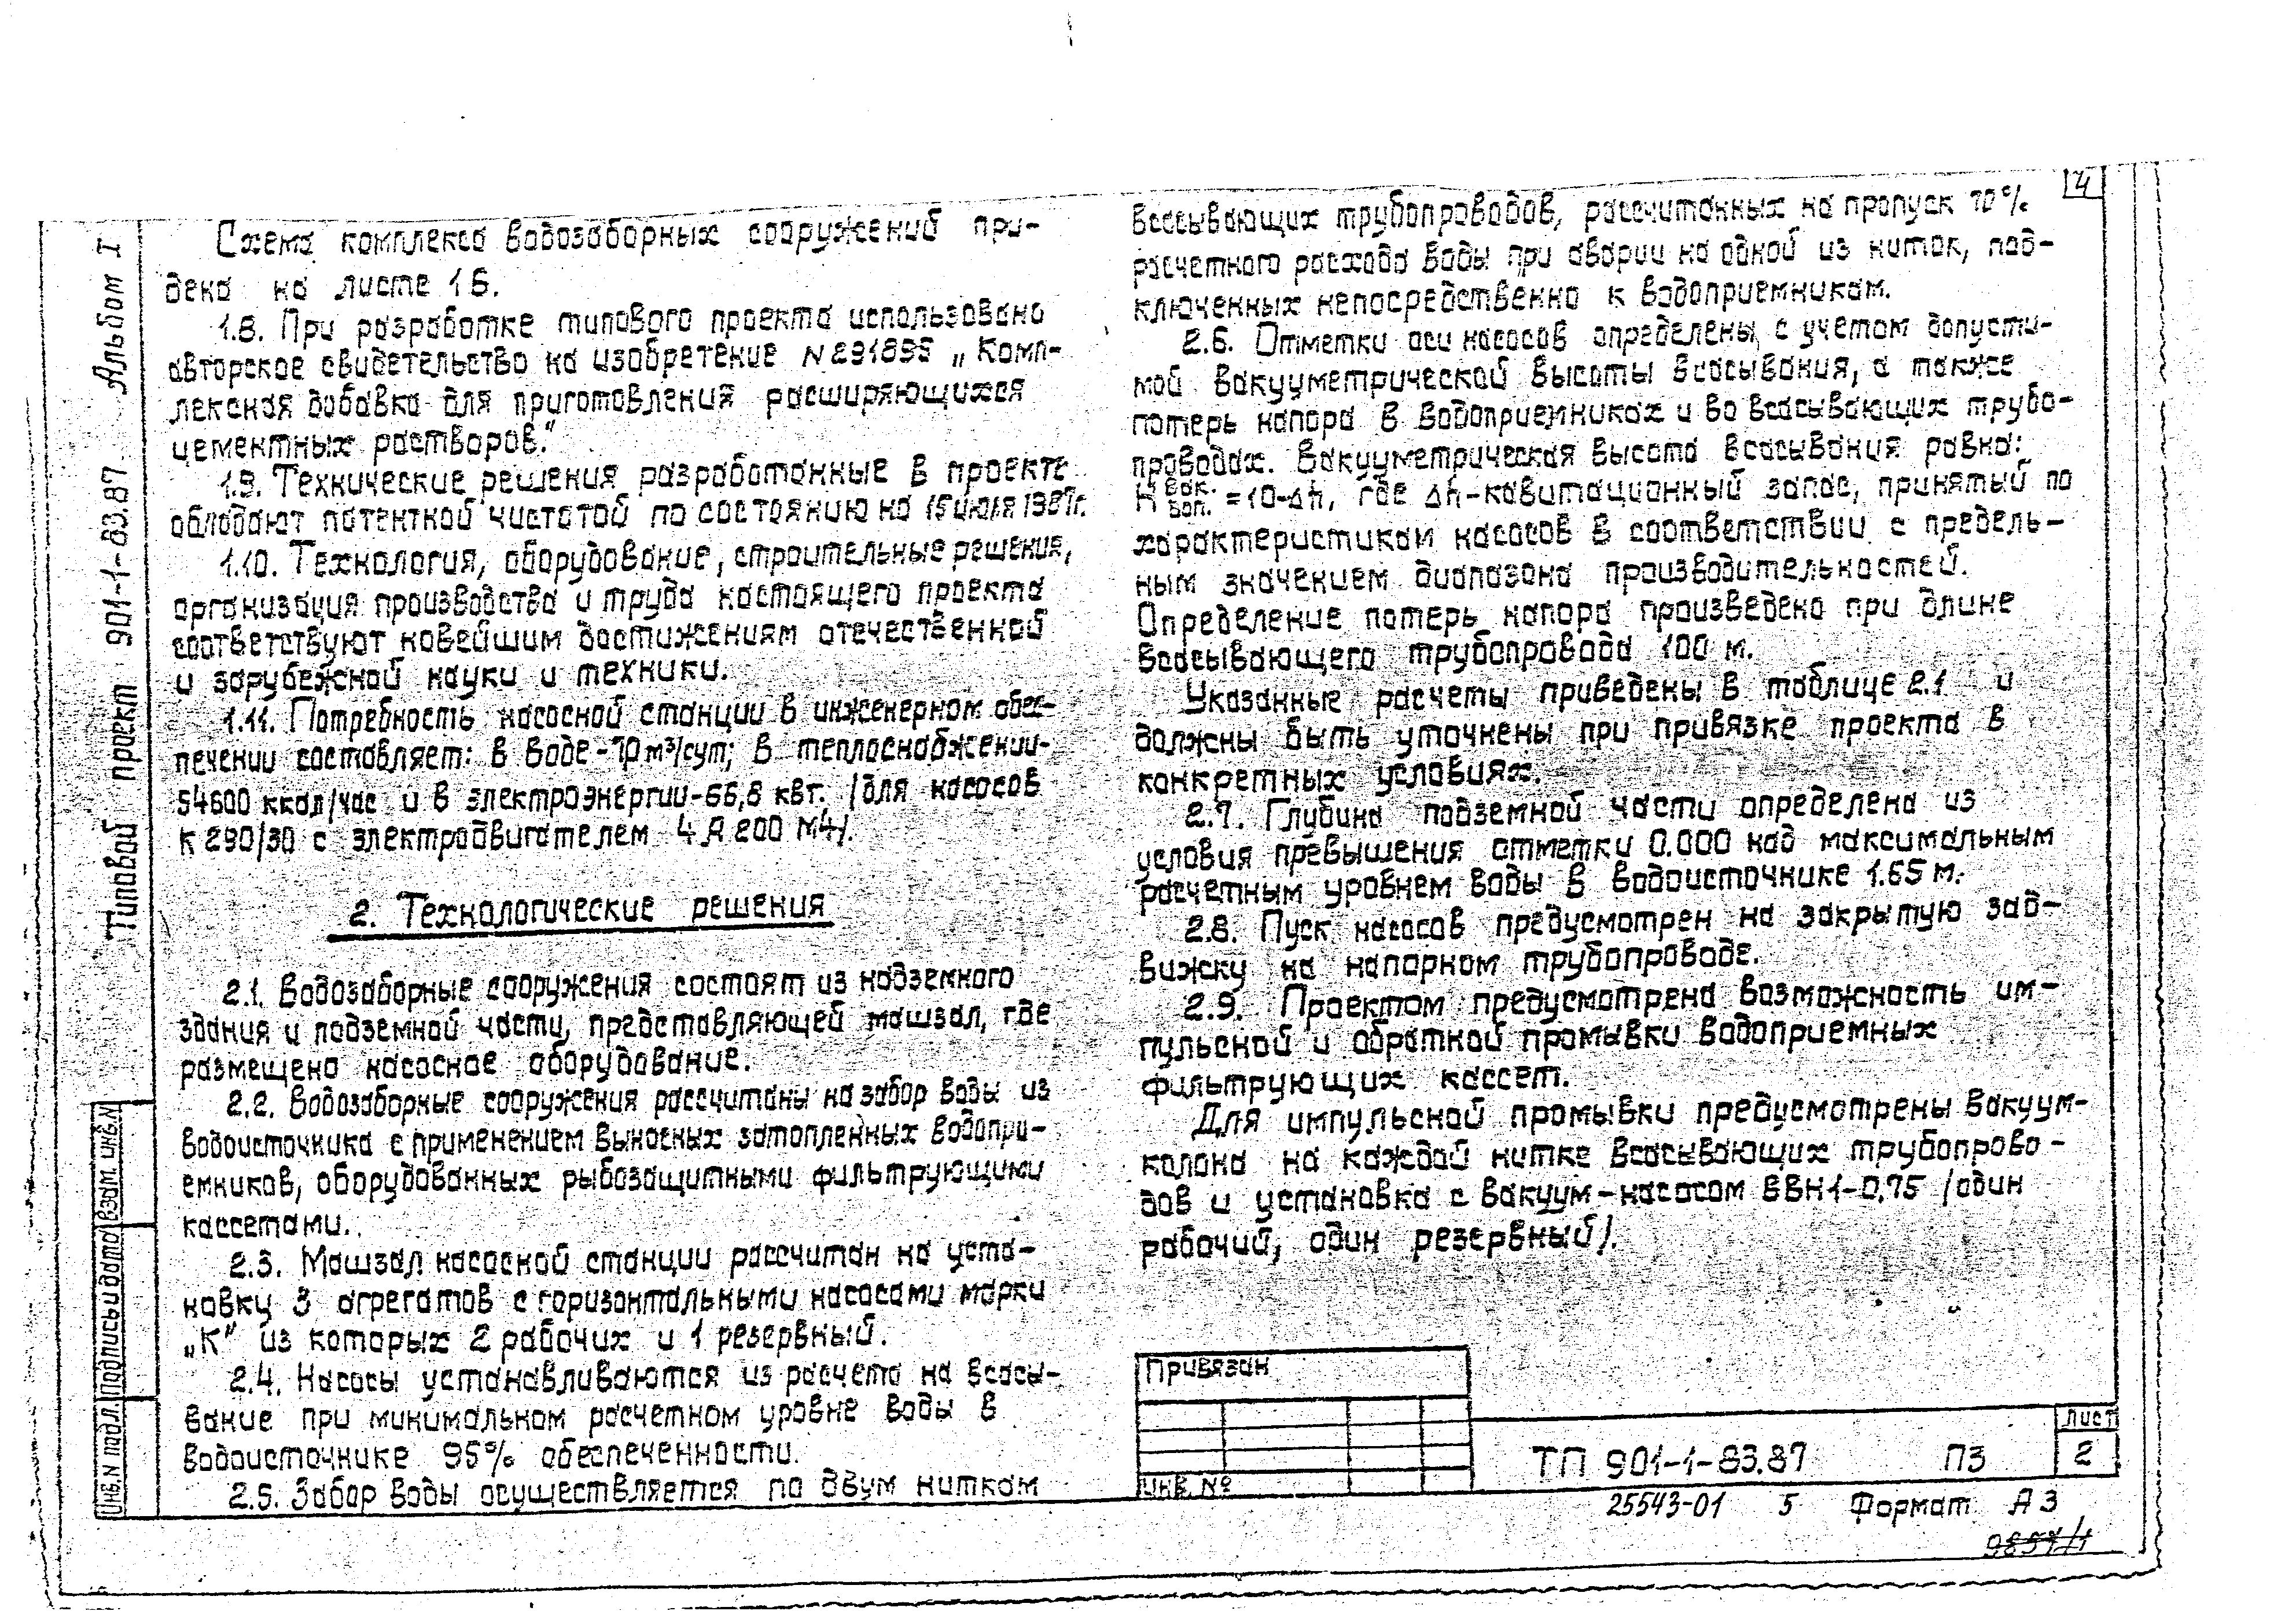 4
Типовой проект 901-1-83.87 Альбом I
Схема комплекса водозаборных сооружений при-
дена на листе 16.
1.8. При разработке типового проекта использовано
авторское свидетельство на изобретение N291895 „Комп-
лексная добавка для приготовления расширяющихся
цементных растворов.“
1.9. Технические решения разработанные в проекте
обладают патентной чистотой по состоянию на 15 июля 1987г.
1.10. Технология, оборудование, строительные решения,
организация производства и труда настоящего проекта
соответствуют новейшим достижениям отечественной
и зарубежной науки и техники.
1.11. Потребность насосной станции в инженерном обес-
печении составляет: в воде-10м³/сут; в теплоснабжении-
54600 ккал/час и в электроэнергии-66,8 квт. /для насосов
К 290/30 с электродвигателем 4А200М4/.
2. Технологические решения
2.1. Водозаборные сооружения состоят из надземного
здания и подземной части, представляющей машзал, где
размещено насосное оборудование.
2.2. Водозаборные сооружения рассчитаны на забор воды из
водоисточника с применением выносных затопленных водопри-
емников, оборудованных рыбозащитными фильтрующими
кассетами.
2.3. Машзал насосной станции рассчитан на уста-
новку 3 агрегатов с горизонтальными насосами марки
„К“ из которых 2 рабочих и 1 резервный.
2.4. Насосы устанавливаются из расчета на всасы-
вание при минимальном расчетном уровне воды в
водоисточнике 95% обеспеченности.
2.5. Забор воды осуществляется по двум ниткам
всасывающих трубопроводов, рассчитанных на пропуск 70%
расчетного расхода воды при аварии на одной из ниток, под-
ключенных непосредственно к водоприемникам.
2.6. Отметки оси насосов определены с учетом допусти-
мой вакууметрической высоты всасывания, а также
потерь напора в водоприемниках и во всасывающих трубо-
проводах. Вакууметрическая высота всасывания равна:
H вак. доп. = 10-Δh, где Δh-кавитационный запас, принятый по
характеристикам насосов в соответствии с предель-
ным значением диапазона производительностей.
Определение потерь напора произведено при длине
всасывающего трубопровода 100 м.
Указанные расчеты приведены в таблице 2.1 и
должны быть уточнены при привязке проекта в
конкретных условиях.
2.7. Глубина подземной части определена из
условия превышения отметки 0.000 над максимальным
расчетным уровнем воды в водоисточнике 1.65 м.
2.8. Пуск насосов предусмотрен на закрытую зад-
вижку на напорном трубопроводе.
2.9. Проектом предусмотрена возможность им-
пульсной и обратной промывки водоприемных
фильтрующих кассет.
Для импульсной промывки предусмотрены вакуум-
колона на каждой нитке всасывающих трубопрово-
дов и установка с вакуум-насосом ВВН1-0,75 /один
рабочий, один резервный/.
Инв.N подл. Подпись и дата Взам. инв.N
Привязан
Инв. №
ТП 901-1-83.87 ПЗ
Лист
2
25543-01 5 Формат А3
9857/1